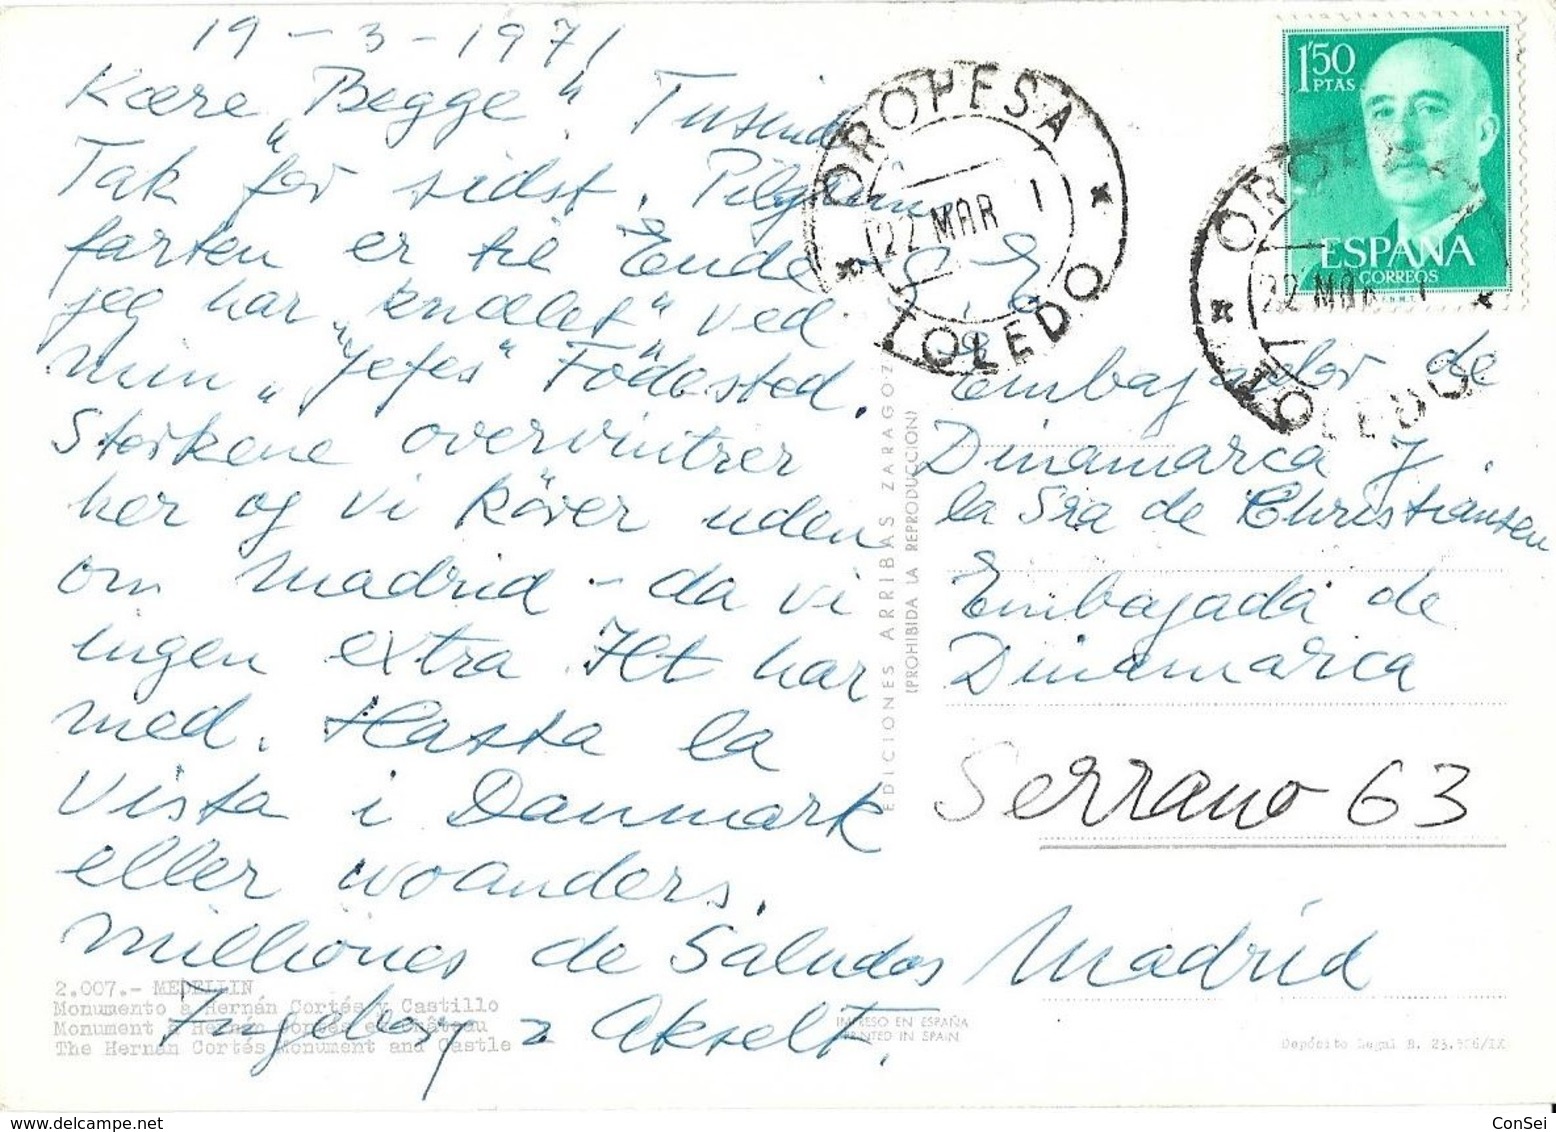 19-3-1971
Kære „Begge". Tusind
Tak for sidst. Pilgrims
farten er til Ende
jeg har „knælet" ved
min „Jefes" Födested.
Storkene overvintrer
her og vi kører uden
om Madrid - da vi
ingen extra Ilt har
med. Hasta la
Vista i Danmark
eller woanders.
Milliones de Saludos
Ingeborg & Akselt.
S. E.
Embajador de
Dinamarca y
la Sra de Christiansen
Embajada de
Dinamarca
Serrano 63
Madrid
OROPESA
22 MAR
TOLEDO
1'50
PTAS
ESPAÑA
CORREOS
F.N.M.T.
OROPESA
22 MAR
TOLEDO
EDICIONES ARRIBAS ZARAGOZA
(PROHIBIDA LA REPRODUCCION)
2.007.- MEDELLIN
Monumento a Hernán Cortés y Castillo
Monument à Hernán Cortés et Château
The Hernán Cortés Monument and Castle
IMPRESO EN ESPAÑA
PRINTED IN SPAIN
Depósito Legal B. 23.506/IX
www.delcampe.net
ConSei